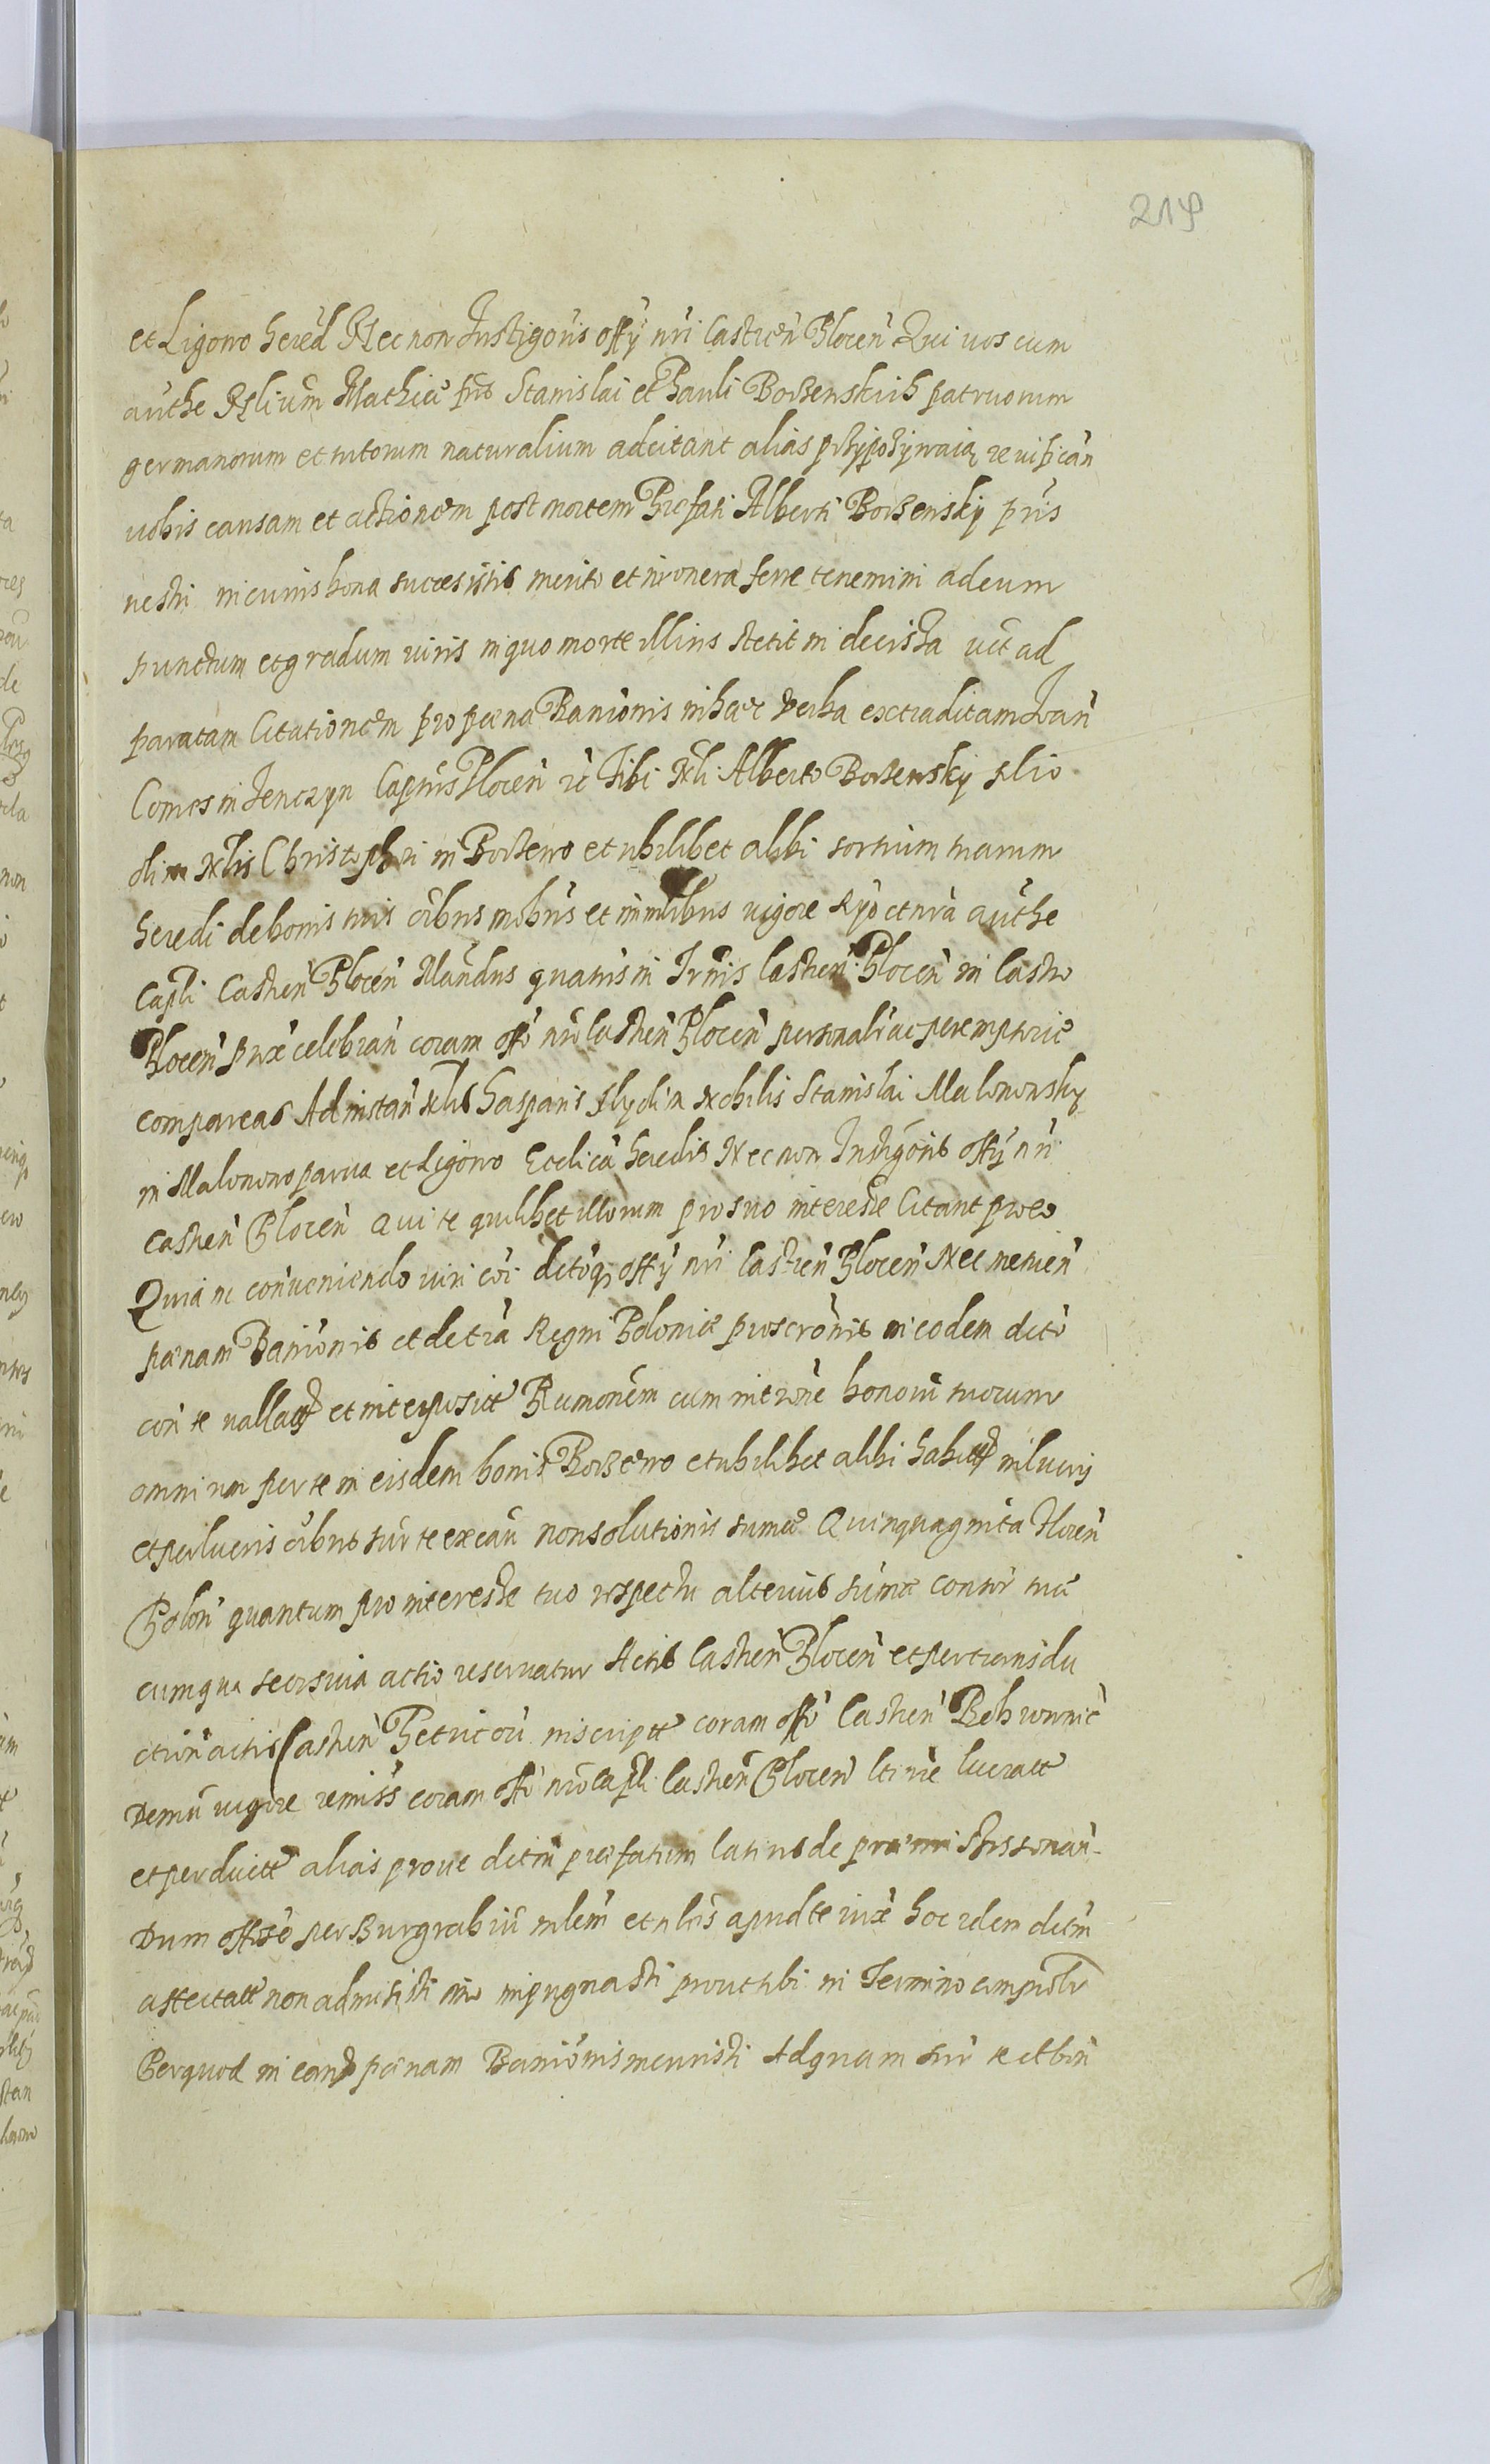 219
et Ligowo hered Nec non Instigoris offÿ nri Castren Plocen Qui vos cum
authe Nlium Mathiæ Stanislai et Pauli Borzenskich patruorum
germanorum et tutorum naturalium adcitant alias przÿpozÿwaią revifican
vobis causam et actionem post mortem Præfati Alberti Borzenskÿ pris
vestri in cuius bona successistis merito et in onera ferre tenemini ad eum
punctum et gradum iuris in quo morte illius stetit indecissa uti ad
paratam Citationem pro pœna Banionis in hæc verba extraditam Joan
Comes in Tenczyn Capnus Plocen Tibi Nli Alberto Borzenskÿ filio
olim Nlis Christophori in Borzewo et ubilibet alibi sortium tuarum
heredi de bonis tuis oibus mobus et immbus vigore et nra authe
Capli Castren Plocen Mandus quatus in Trnis Castren Plocen in Castro
Plocen celebran coram offo nro Castren Plocen personalr ac peremptorie
compareas Ad instan Nlis Gasparis filÿ olim Nobilis Stanislai Malonowskÿ
in Malonowo parva et Ligowo Ecclica heredis Nec non Instigoris offÿ nri
Castren Plocen Qui te quilibet illorum pro suo interesse Citant pro eo
Quia tu conveniendo iuri coi dctoq offÿ nri Castren Plocen Nec metuen
pœnam Banionis et de tra Regni Poloniæ proscronis in eodem dcto
con te vallat et interposit Rumonem cum introne bonorum tuorum
omnium per te in eisdem bonis Borzewo et ubilibet alibi habit in lucrÿ
et perlucris oibus sur te ex cau non solutionis sumæ Quinquaginta floren
Polon quantum pro interesse tuo respectu alterius sumæ contr tuæ
cum qua seorsiva actio reservatur Actis Castren Plocen et per transdu
ction actis Castren Petricou inscript coram offo Castren
Demu vigore remiss coram offo nro Capli Castren Plocen ltime lucratt
et perduitt alias prout dctm præfatum latius de præmissis sonan-
Dum offiose per Burgrabiu mlem et nles apud te iuxe hoc idem dctm
attentatt non admisisti imo impugnasti prout tibi in Termino
Per quod in eand pœnam Banionis incuristi Ad quam sur te et bon